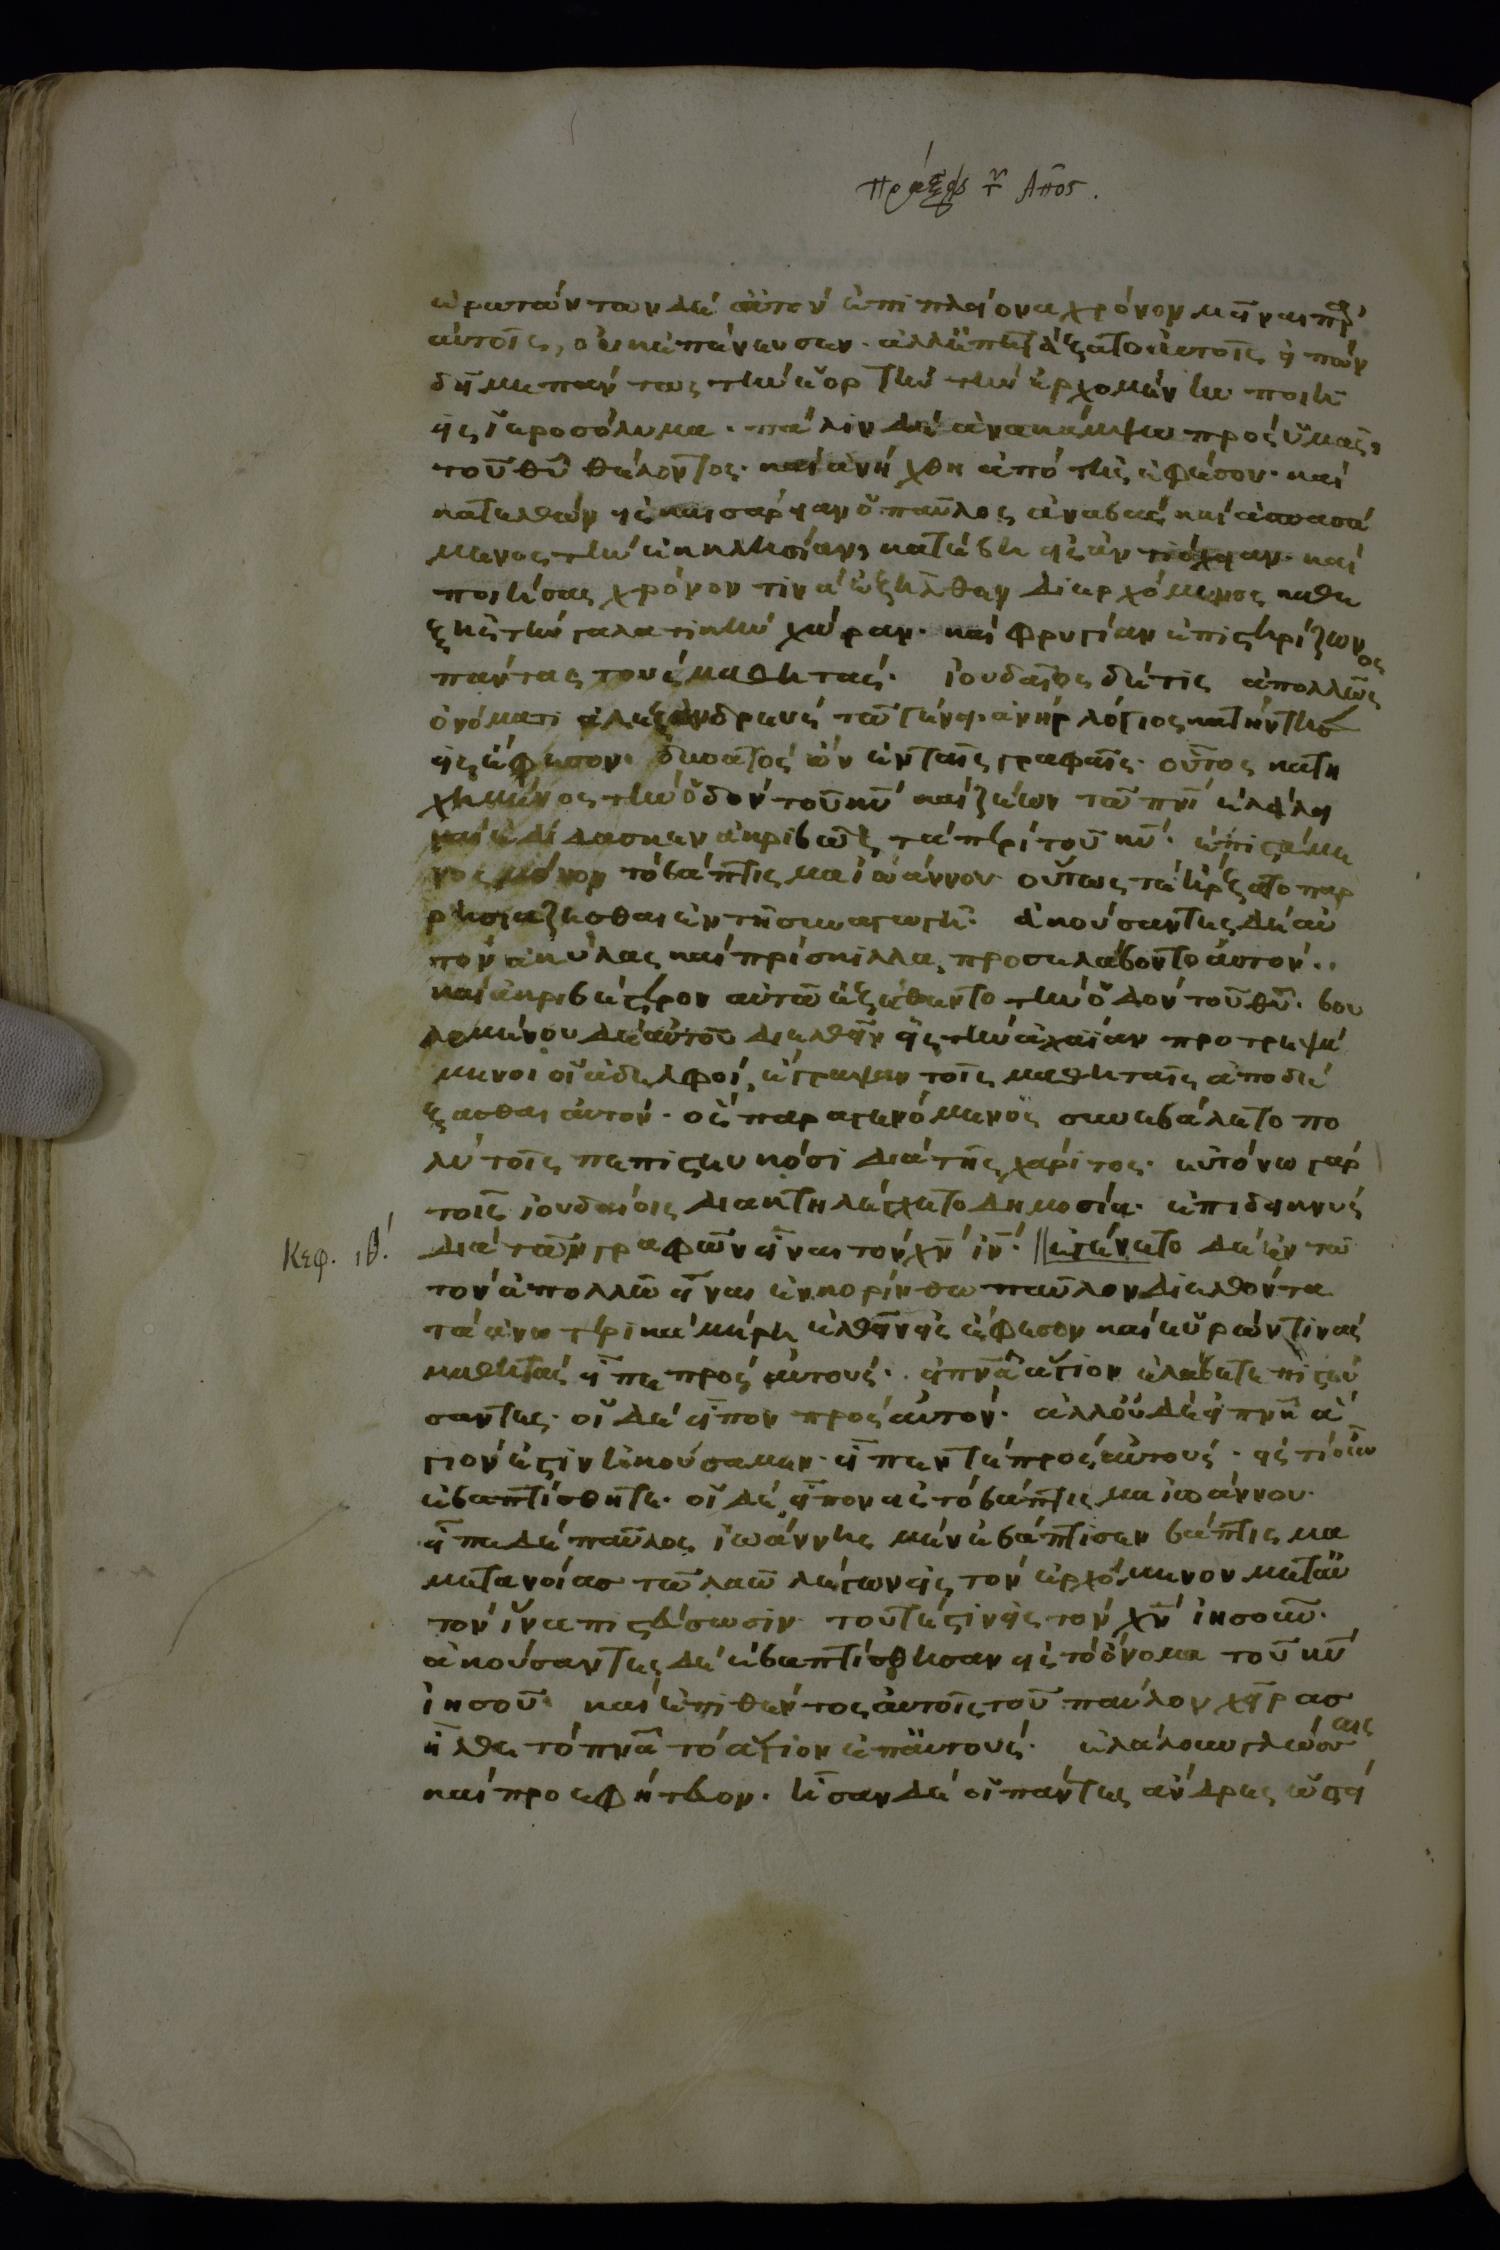 πράξεις τ Απος.
ἐρωτάντων δὲ αὐτὸν ἐπὶ πλείονα χρόνον μεῖναι πρ
αὐτοῖς, οὐκ ἐπένευσεν· ἀλλ' ἀπετάξατο αὐτοῖς εἰπών
δεῖ με πάντως τὴν ἑορτὴν τὴν ἐρχομένην ποιῆ
εἰς ἱεροσόλυμα· πάλιν δὲ ἀνακάμψω πρὸς ὑμᾶς,
τοῦ θυ θέλοντος· καὶ ἀνήχθη ἀπὸ τῆς ἐφέσου· καὶ
κατελθὼν εἰς καισαρείαν ὁ παῦλος ἀναβὰς καὶ ἀσπασά
μενος τὴν ἐκκλησίαν, κατέβη εἰς ἀντιόχειαν· καὶ
ποιήσας χρόνον τινὰ ἐξῆλθεν διερχόμενος καθε
ξῆς τὴν γαλατικὴν χώραν· καὶ φρυγίαν ἐπιστηρίζων
πάντας τοὺς μαθητάς· ἰουδαῖος δέ τις ἀπολλῶς
ὀνόματι ἀλεξανδρεὺς τῶ γένει· ἀνὴρ λόγιος κατήντησ
εἰς ἔφεσον· δυνατὸς ὢν ἐν ταῖς γραφαῖς· οὗτος κατη
χημένος τὴν ὁδὸν τοῦ κυ καὶ ζέων τῶ πνι ἐλάλει
καὶ ἐδίδασκεν ἀκριβῶς τὰ περὶ τοῦ κυ· ἐπιστάμε
νος μόνον τὸ βάπτισμα ἰωάννου οὕτως τε ἤρξατο παρ
ρησιάζεσθαι ἐν τῆ συναγωγῆ· ἀκούσαντες δὲ αὐ
τὸν ἀκύλας καὶ πρίσκιλλα, προσελάβοντο αὐτόν·
καὶ ἀκριβέστερον αὐτῶ ἐξέθεντο τὴν ὁδὸν τοῦ θυ· βου
λομένου δὲ αὐτοῦ διελθεῖν εἰς τὴν ἀχαΐαν προτρεψά
μενοι οἱ ἀδελφοὶ, ἔγραψαν τοῖς μαθηταῖς ἀποδέ
ξασθαι αὐτόν· ὃς παραγενόμενος συνεβάλετο πο
λὺ τοῖς πεπιστευκόσι διὰ τῆς χάριτος· εὐτόνω γὰρ
τοῖς ἰουδαίοις διακατηλέγχετο δημοσία· ἐπιδεικνὺς
Κεφ. ιθ. διὰ τῶν γραφῶν εἶναι τὸν χν ιν· ἐγένετο δὲ ἐν τῶ
τὸν ἀπολλῶ εἶναι ἐν κορίνθω παῦλον διελθόντα
τὰ ἀνωτερικὰ μέρη ἐλθεῖν εἰς ἔφεσον καὶ εὑρών τινας
μαθητὰς εἶπε πρὸς αὐτούς· εἰ πνα ἅγιον ἐλάβετε πιστεύ
σαντες· οἱ δὲ εἶπον πρὸς αὐτόν· ἀλλ' οὐδὲ εἰ πνα ἅ
γιον ἐστιν ἠκούσαμεν· εἶπεν τὲ πρὸς αὐτούς· εἰς τί οὖν
ἐβαπτίσθητε· οἱ δὲ εἶπον εἰς τὸ βάπτισμα ἰωάννου·
εἶπε δὲ παῦλος ἰωάννης μὲν ἐβάπτισεν βάπτισμα
μετανοίας τῶ λαῶ λέγων εἰς τὸν ἐρχόμενον μετ' αὐ
τὸν ἵνα πιστεύσωσιν τουτέστιν εἰς τὸν χν ἰησοῦν·
ἀκούσαντες δὲ ἐβαπτίσθησαν εἰς τὸ ὄνομα τοῦ κυ
ἰησοῦ· καὶ ἐπιθέντος αὐτοῖς τοῦ παύλου χεῖρας
ἦλθε τὸ πνα τὸ ἅγιον ἐπ' αὐτούς· ἐλάλουν γλώσσαις
καὶ προεφήτευον· ἦσαν δὲ οἱ πάντες ἄνδρες ὡσεὶ